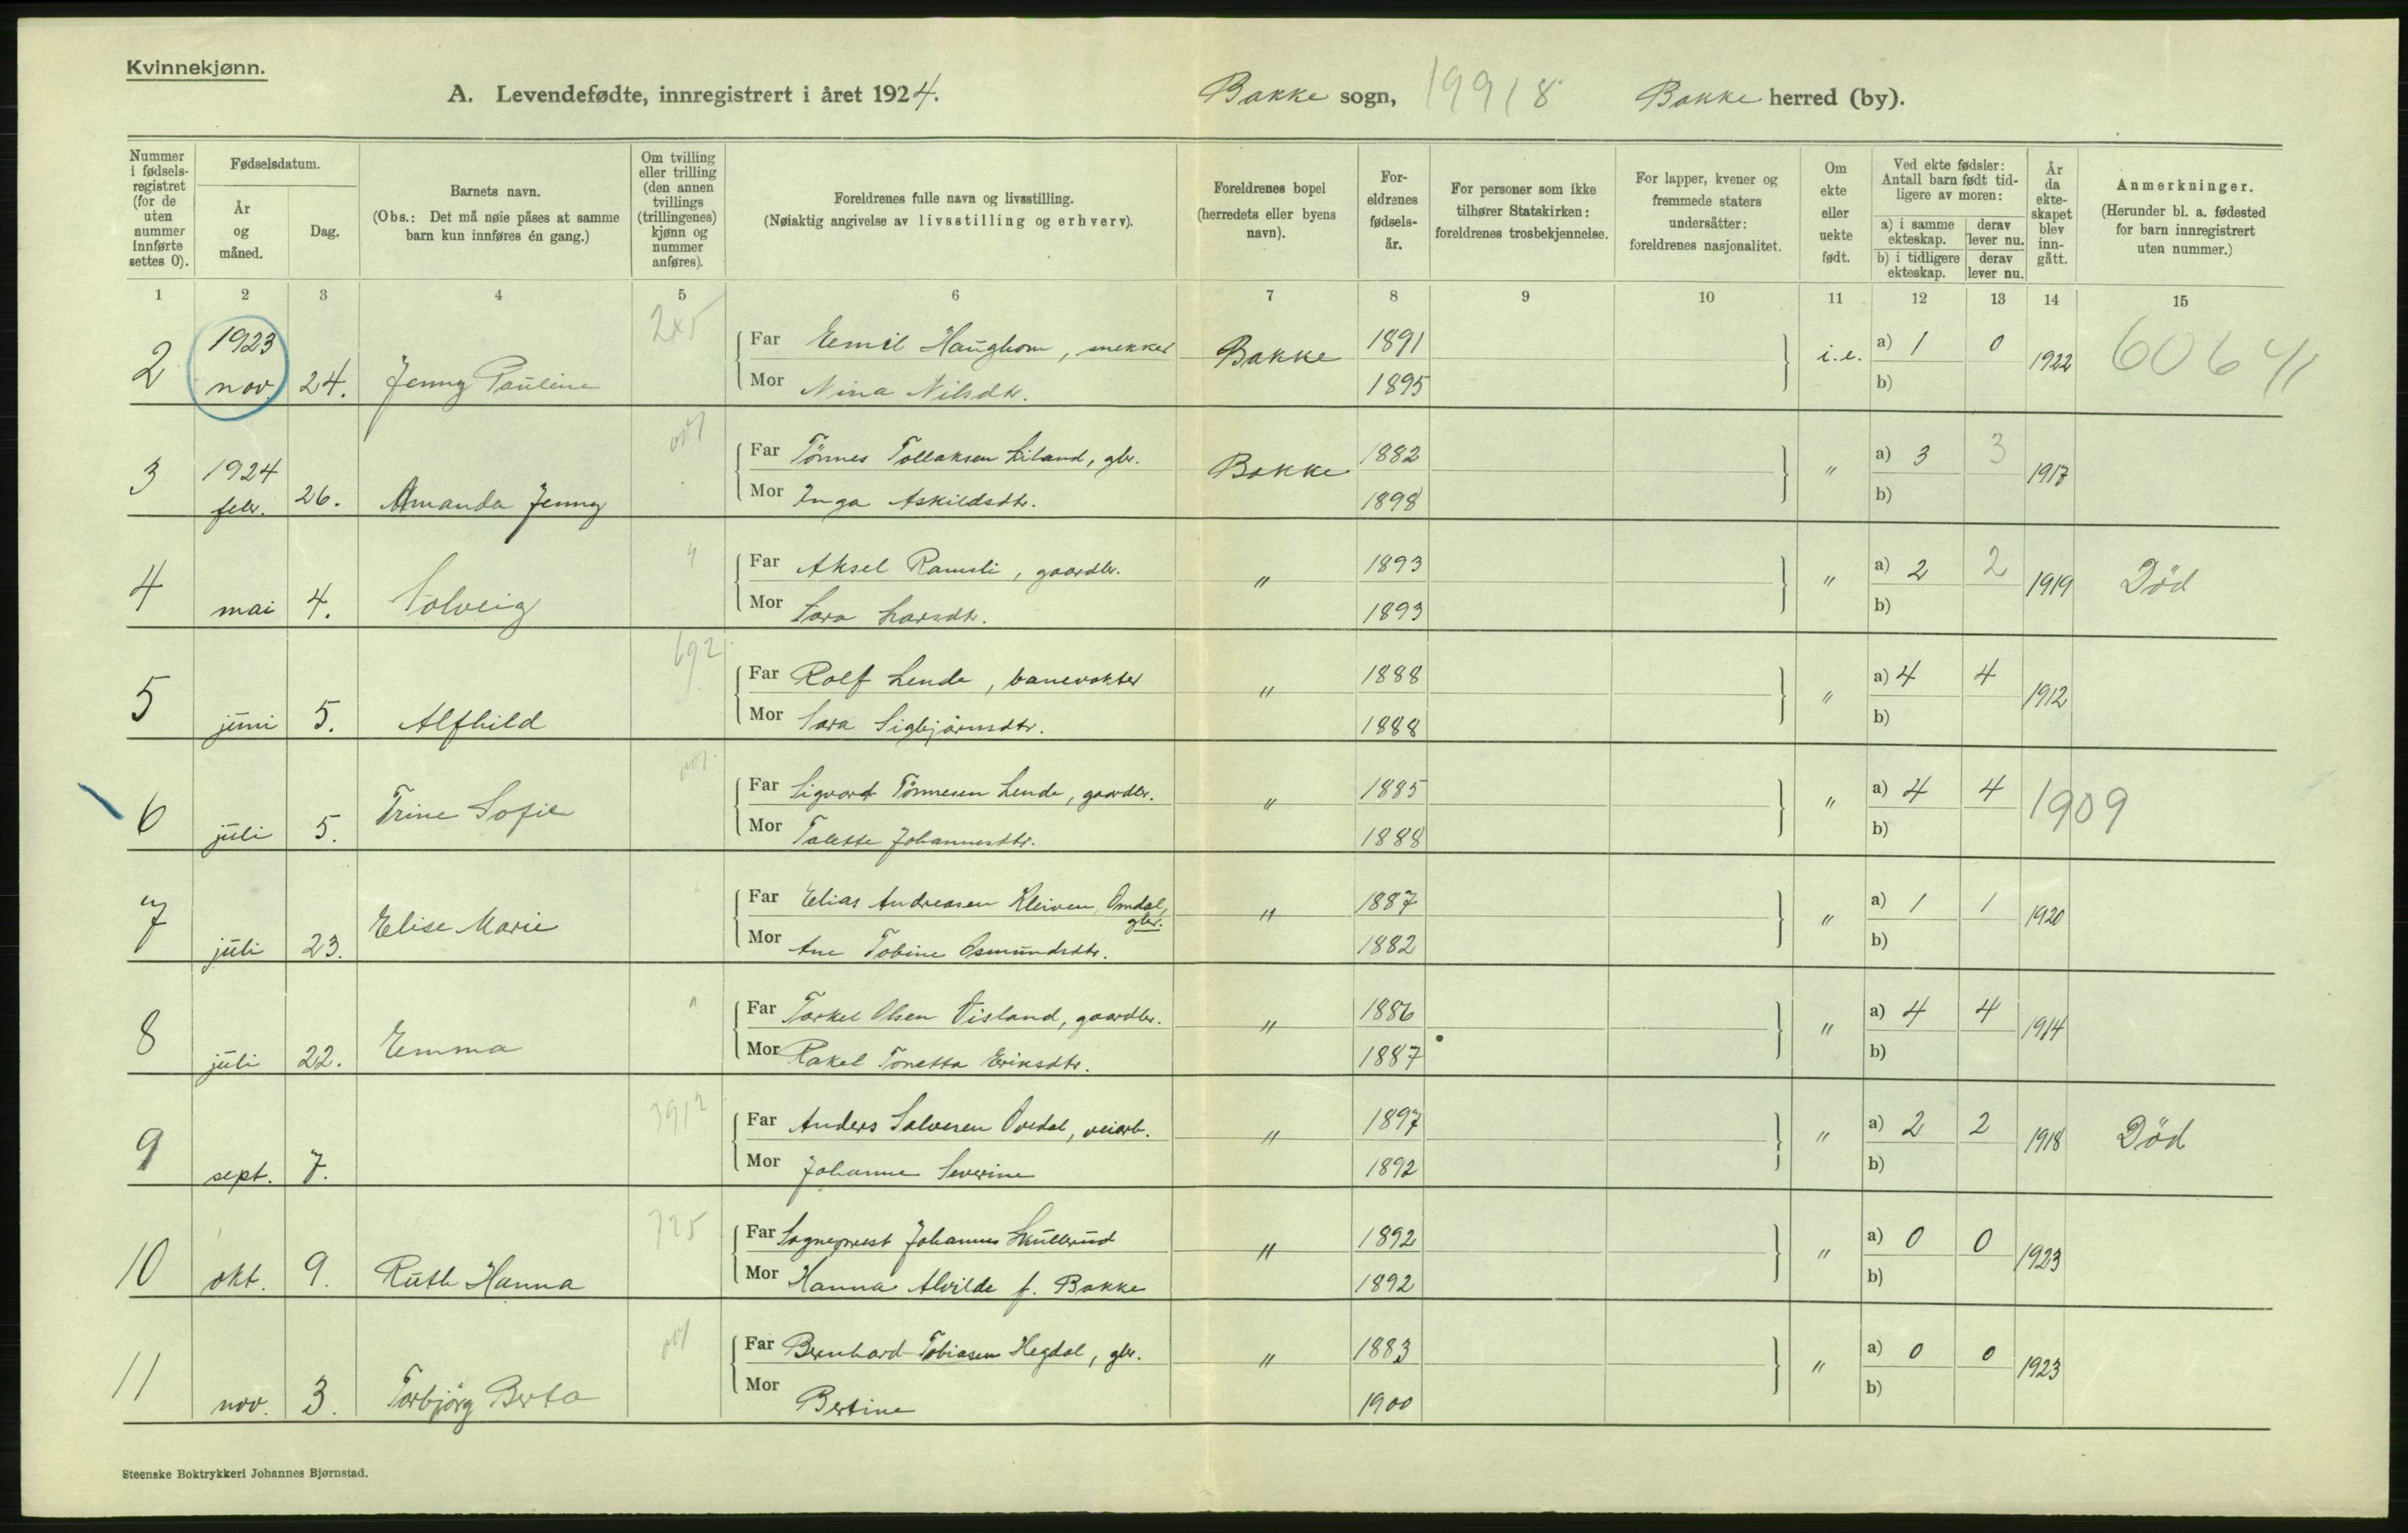 Kvinnekjønn.
A. Levendefødte, innregistrert i året 1924. Bakke sogn, 19918 Bakke herred (by).
Nummer i fødsels-registret (for de uten nummer innførte settes 0).
Fødselsdatum.
År og måned.
Dag.
Barnets navn.
(Obs.: Det må nøie påses at samme barn kun innføres én gang.)
Om tvilling eller trilling (den annen tvillings (trillingenes) kjønn og nummer anføres).
Foreldrenes fulle navn og livsstilling.
(Nøiaktig angivelse av livsstilling og erhverv).
Foreldrenes bopel (herredets eller byens navn).
For-eldrenes fødsels-år.
For personer som ikke tilhører Statskirken: foreldrenes trosbekjennelse.
For lapper, kvener og fremmede staters undersåtter: foreldrenes nasjonalitet.
Om ekte eller uekte født.
Ved ekte fødsler: Antall barn født tid-ligere av moren:
a) i samme ekteskap. derav lever nu.
b) i tidligere ekteskap. derav lever nu.
År da ekte-skapet blev inn-gått.
Anmerkninger.
(Herunder bl. a. fødested for barn innregistrert uten nummer.)
1 2 3 4 5 6 7 8 9 10 11 12 13 14 15
2 1923 nov. 24. Jenny Pauline 245 Far Emil Haughom, snekker Bakke 1891 i.e. a) 1 0 1922 60641
Mor Nina Nilsdtr. 1895 b)
3 1924 febr. 26. Amanda Jenny Far Tönnes Tollaksen Liland, gbr. Bakke 1882 " a) 3 3 1917
Mor Inga Askildsdtr. 1898 b)
4 mai 4. Solveig " Far Aksel Ramsli, gaardbr. " 1893 " a) 2 2 1919 Död
Mor Sara Larsdtr. 1893 b)
5 juni 5. Alfhild 692 Far Rolf Lende, banevokter " 1888 " a) 4 4 1912
Mor Sara Sigbjörnsdtr. 1888 b)
6 juli 5. Trine Sofie Far Sigvart Tönnesen Lende, gaardbr. " 1885 " a) 4 4 1909
Mor Talette Johannesdtr. 1888 b)
7 juli 23. Elise Marie " Far Elias Andreasen Kleiven, Omdal, gbr. " 1887 " a) 1 1 1920
Mor Ane Tobine Osmundsdtr. 1882 b)
8 juli 22. Emma " Far Torkel Olsen Visland, gaardbr. " 1886 " a) 4 4 1914
Mor Rakel Tonetta Eriksdtr. 1887 b)
9 sept. 7. 3912 Far Anders Salvesen Ovedal, veiarb. " 1897 " a) 2 2 1918 Död
Mor Johanne Severine 1892 b)
10 okt. 9. Ruth Hanna 725 Far Sogneprest Johannes Skullerud " 1892 " a) 0 0 1923
Mor Hanna Alvilde f. Bakke 1892 b)
11 nov. 3. Torbjörg Berta Far Bernhard Tobiasen Hegdal, gbr. " 1883 " a) 0 0 1923
Mor Bertine 1900 b)
Steenske Boktrykkeri Johannes Bjørnstad.